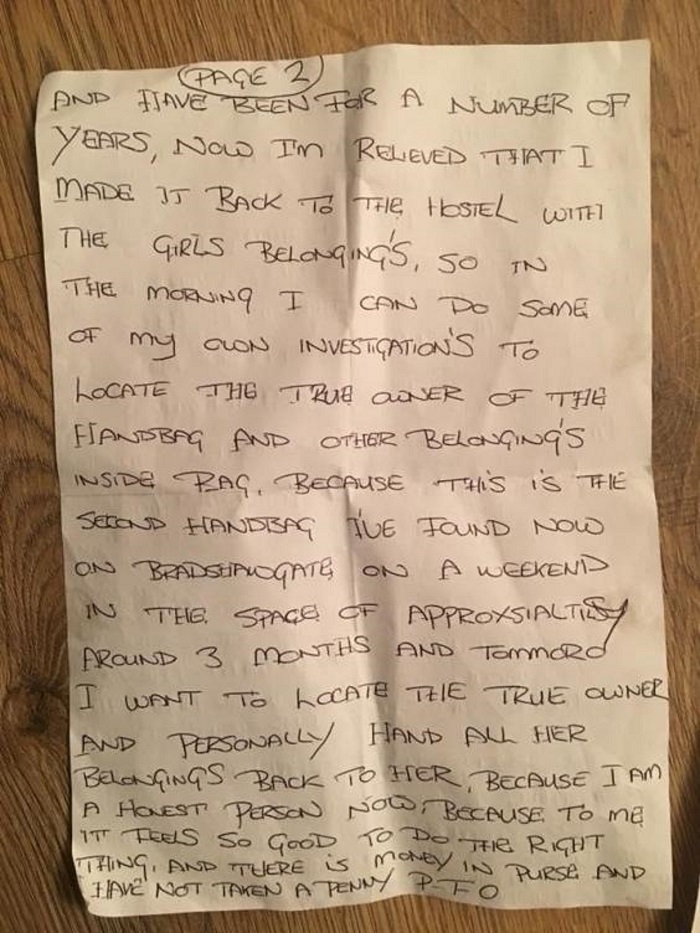 PAGE 2
AND HAVE BEEN FOR A NUMBER OF
YEARS, NOW I'm RELIEVED THAT I
MADE IT BACK TO THE HOSTEL WITH
THE GIRLS BELONGING'S, SO IN
THE MORNING I CAN DO SOME
OF my OWN INVESTIGATION'S TO
LOCATE THE TRUE OWNER OF THE
HANDBAG AND OTHER BELONGING'S
INSIDE BAG, BECAUSE THIS IS THE
SECOND HANDBAG I'VE FOUND NOW
ON BRADSHAWGATE ON A WEEKEND
IN THE SPACE OF
AROUND 3 MONTHS AND TOMMORO
I WANT TO LOCATE THE TRUE OWNER
AND PERSONALLY HAND ALL HER
BELONGINGS BACK TO HER, BECAUSE I AM
A HONEST PERSON NOW, BECAUSE TO ME
IT FEELS SO GOOD TO DO THE RIGHT
THING, AND THERE IS MONEY IN PURSE AND
HAVE NOT TAKEN A PENNY P-T-O